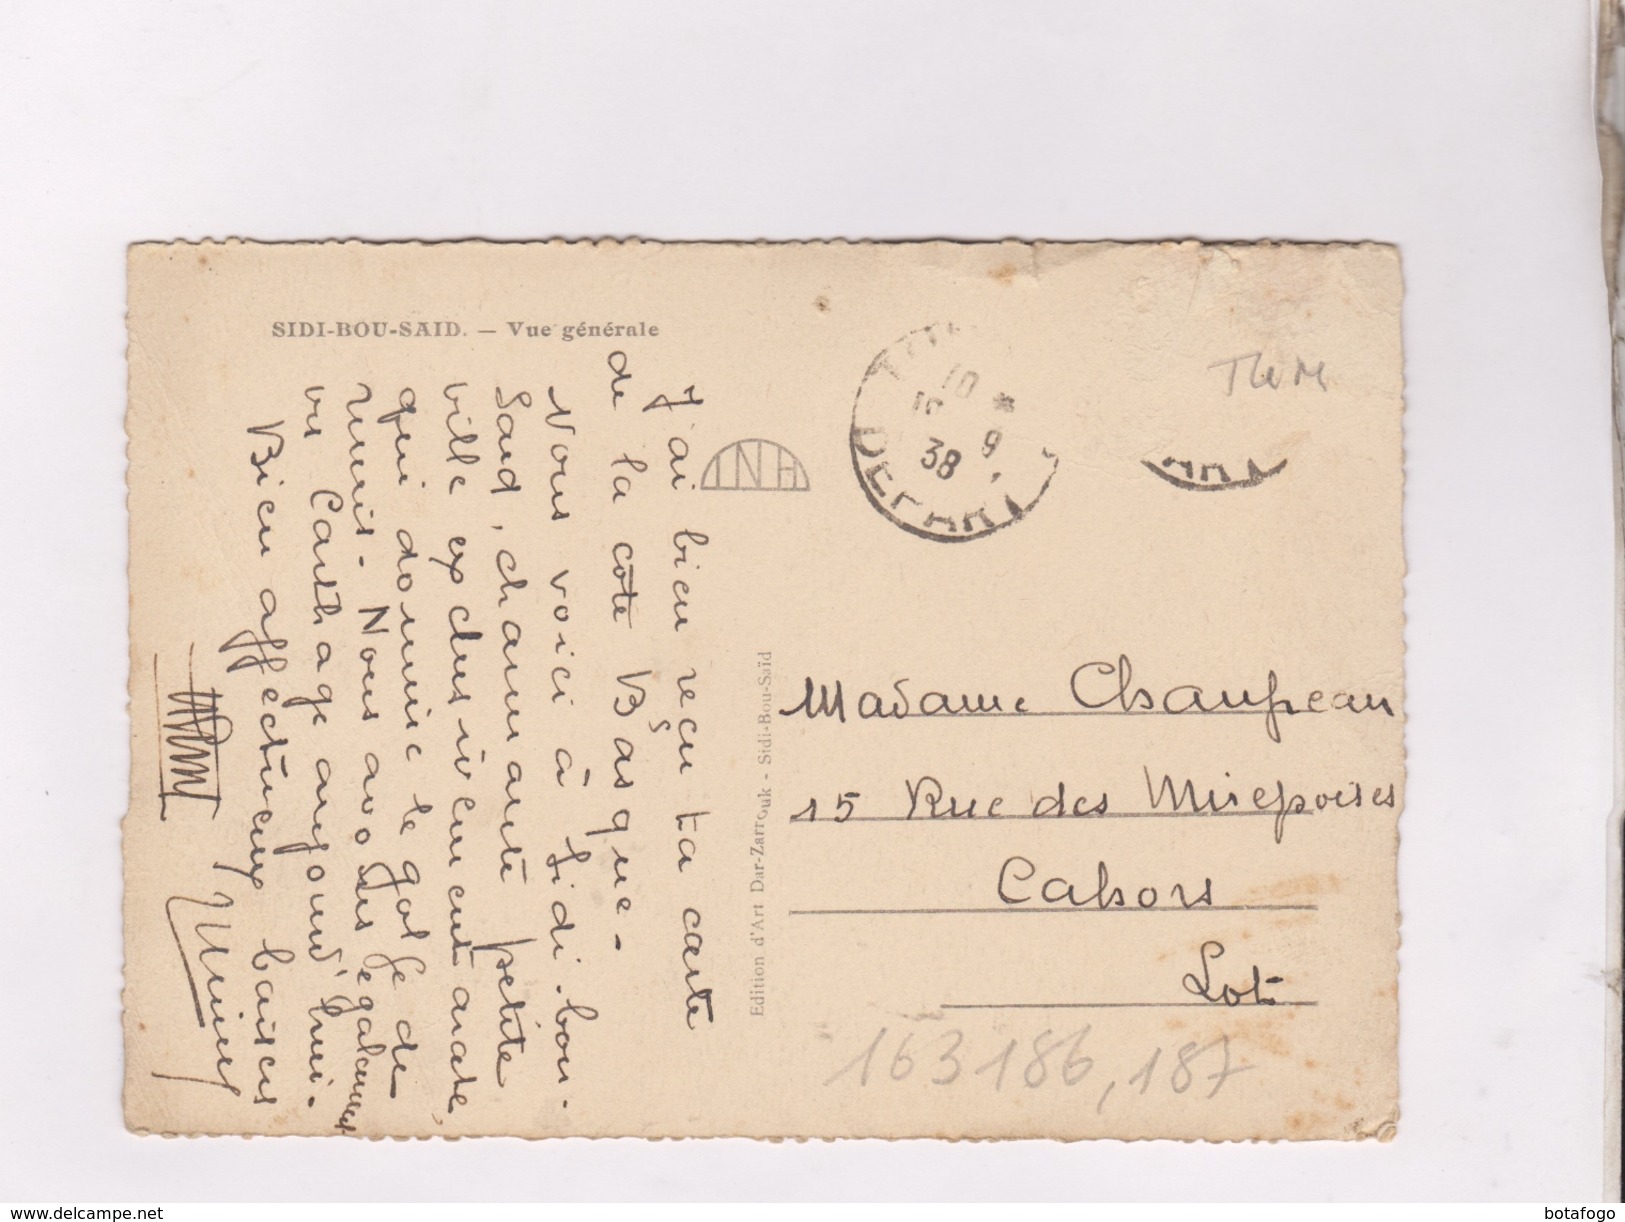 SIDI-BOU-SAID. — Vue générale
J'ai bien reçu ta carte
de la côte Basque -
Nous voici à Sidi-bou-
Saïd, charmante petite
ville exclusivement arabe,
qui domine le golfe de
Tunis - Nous avons également
vu Carthage aujourd'hui -
Bien affectueux baisers
INH
Edition d'Art Dar-Zarrouk - Sidi-Bou-Saïd
10 *
9
38
DEPART
Madame Chaupeau
15 Rue des Mirepoises
Cahors
Lot
163186, 187
www.delcampe.net
botafogo